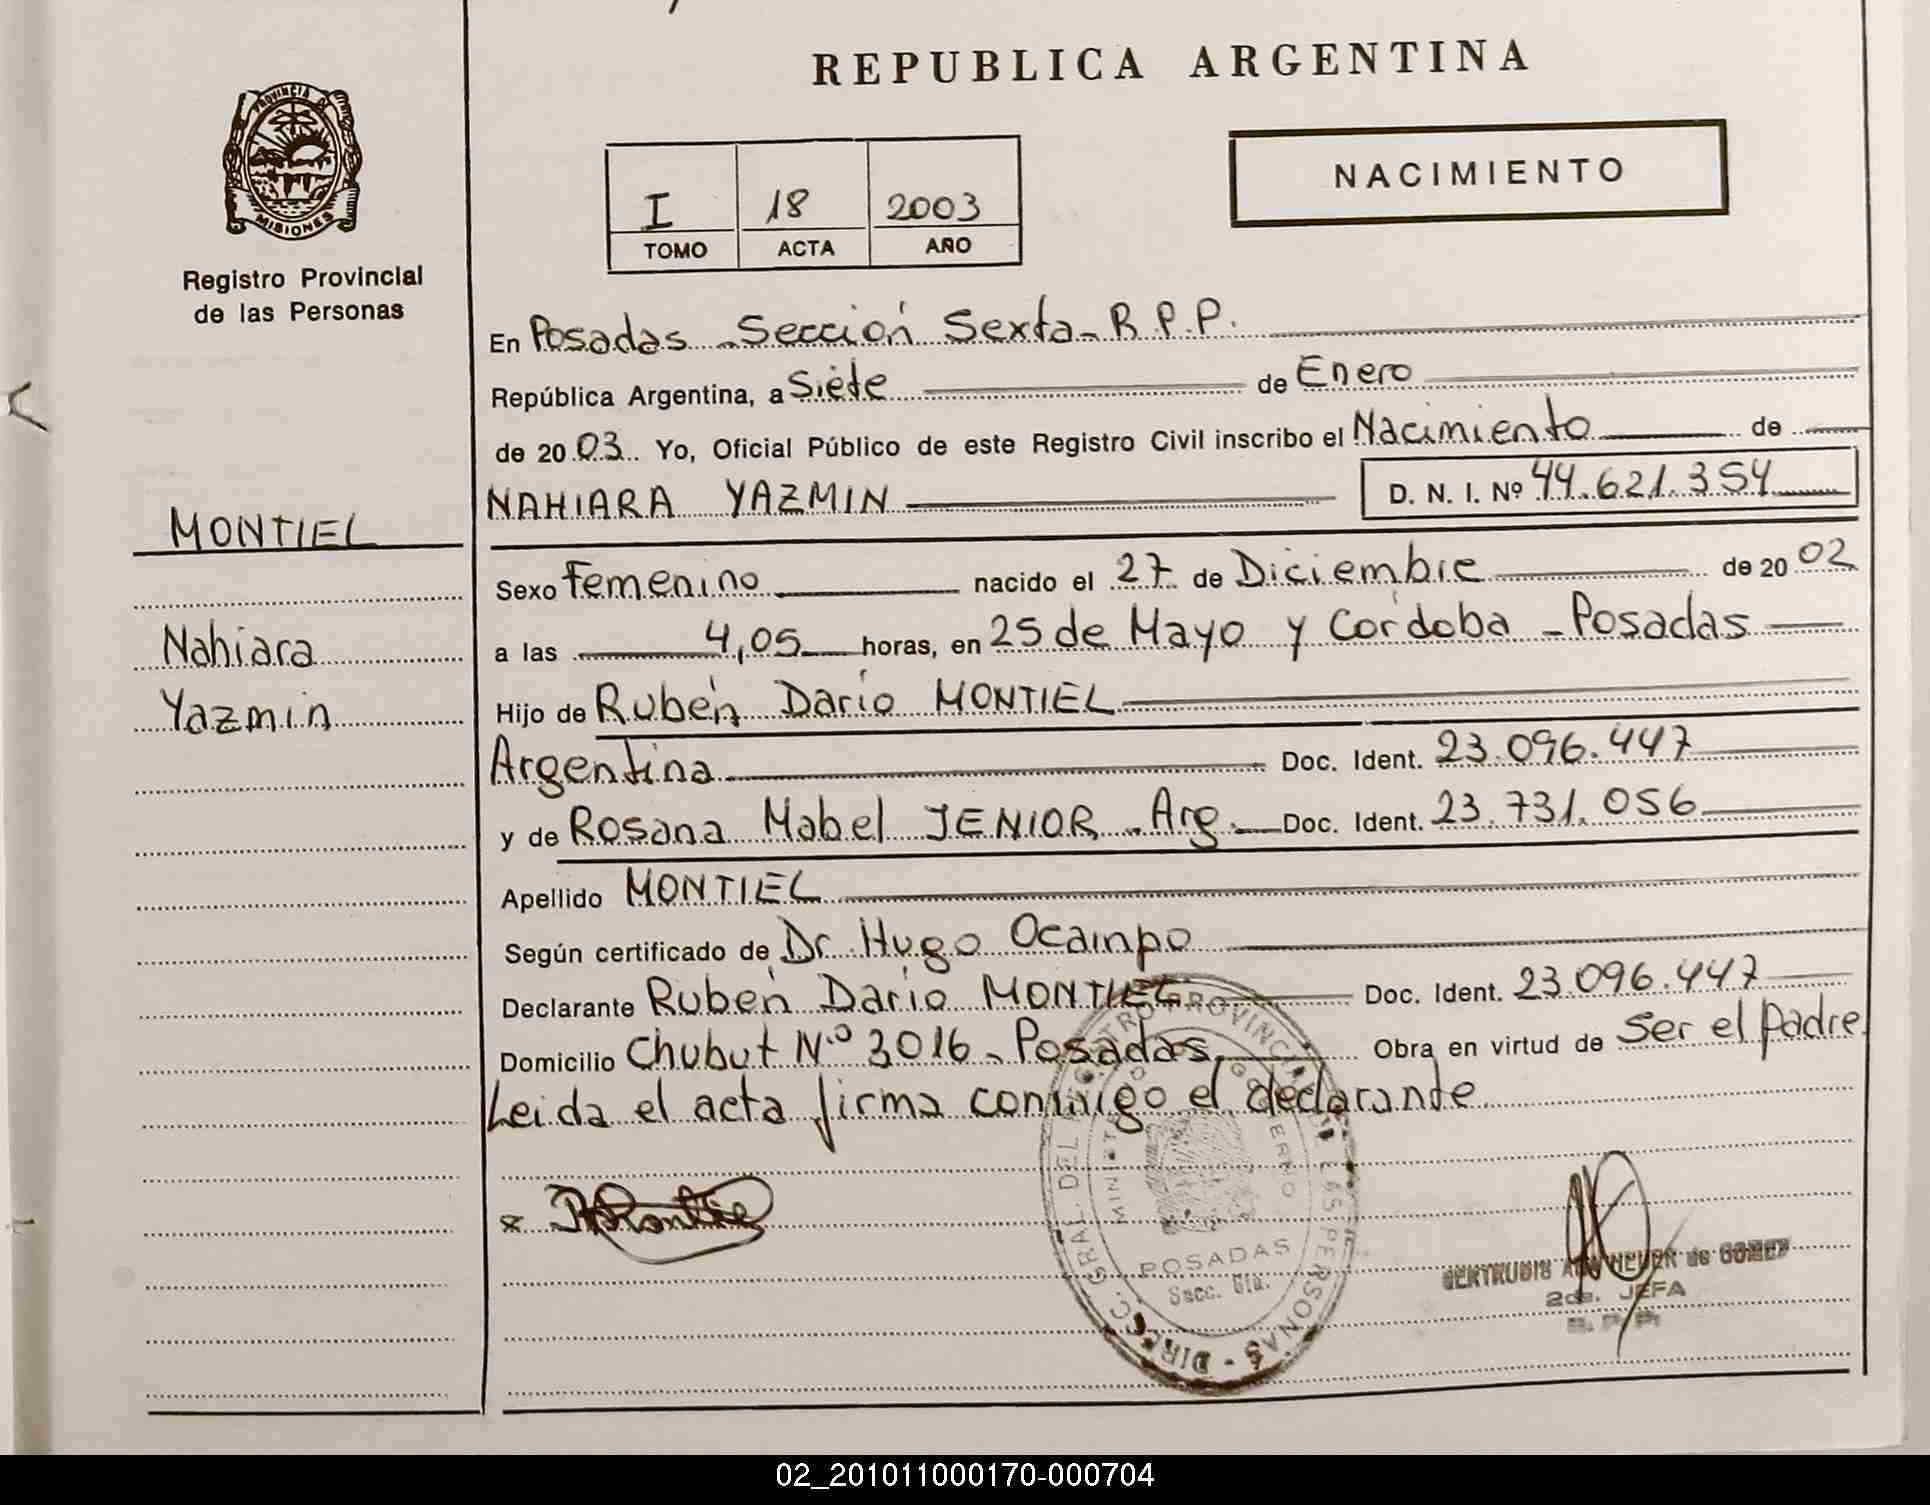 REPUBLICA ARGENTINA
PROVINCIA DE
MISIONES
Registro Provincial
de las Personas
I 18 2003
TOMO ACTA AÑO
NACIMIENTO
En Posadas - Sección Sexta - R.P.P.
República Argentina, a Siete de Enero
de 2003 Yo, Oficial Público de este Registro Civil inscribo el Nacimiento de
NAHIARA YAZMIN D. N. I. Nº 44.621.354
MONTIEL
Nahiara
Yazmin
Sexo Femenino nacido el 27 de Diciembre de 2002
a las 4,05 horas, en 25 de Mayo y Córdoba - Posadas
Hijo de Rubén Darío MONTIEL
Argentina Doc. Ident. 23.096.447
y de Rosana Mabel JENIOR - Arg. Doc. Ident. 23.731.056
Apellido MONTIEL
Según certificado de Dr. Hugo Ocampo
Declarante Rubén Darío MONTIEL Doc. Ident. 23.096.447
Domicilio Chubut N.º 3016 - Posadas Obra en virtud de Ser el padre
Leida el acta firma conmigo el declarante
DIRECC. GRAL. DEL REGISTRO PROVINCIAL DE LAS PERSONAS
POSADAS
Secc. 6ta.
GERTRUDIS de GOMEZ
2da. JEFA
R. P. P.
02_201011000170-000704